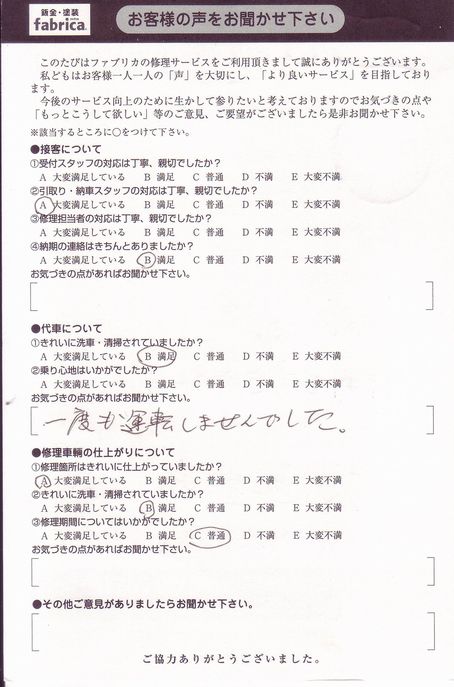 鈑金・塗装
fabrica.
お客様の声をお聞かせ下さい
このたびはファブリカの修理サービスをご利用頂きまして誠にありがとうございます。
私どもはお客様一人一人の「声」を大切にし、「より良いサービス」を目指しており
ます。
今後のサービス向上のために生かして参りたいと考えておりますのでお気づきの点や
「もっとこうして欲しい」等のご意見、ご要望がございましたら是非お聞かせ下さい。
※該当するところに○をつけて下さい。
●接客について
①受付スタッフの対応は丁寧、親切でしたか？
A 大変満足している B 満足 C 普通 D 不満 E 大変不満
②引取り・納車スタッフの対応は丁寧、親切でしたか？
A 大変満足している B 満足 C 普通 D 不満 E 大変不満
③修理担当者の対応は丁寧、親切でしたか？
A 大変満足している B 満足 C 普通 D 不満 E 大変不満
④納期の連絡はきちんとありましたか？
A 大変満足している B 満足 C 普通 D 不満 E 大変不満
お気づきの点があればお聞かせ下さい。
●代車について
①きれいに洗車・清掃されていましたか？
A 大変満足している B 満足 C 普通 D 不満 E 大変不満
②乗り心地はいかがでしたか？
A 大変満足している B 満足 C 普通 D 不満 E 大変不満
お気づきの点があればお聞かせ下さい。
一度も運転しませんでした。
●修理車輌の仕上がりについて
①修理箇所はきれいに仕上がっていましたか？
A 大変満足している B 満足 C 普通 D 不満 E 大変不満
②きれいに洗車・清掃されていましたか？
A 大変満足している B 満足 C 普通 D 不満 E 大変不満
③修理期間についてはいかがでしたか？
A 大変満足している B 満足 C 普通 D 不満 E 大変不満
お気づきの点があればお聞かせ下さい。
●その他ご意見がありましたらお聞かせ下さい。
ご協力ありがとうございました。